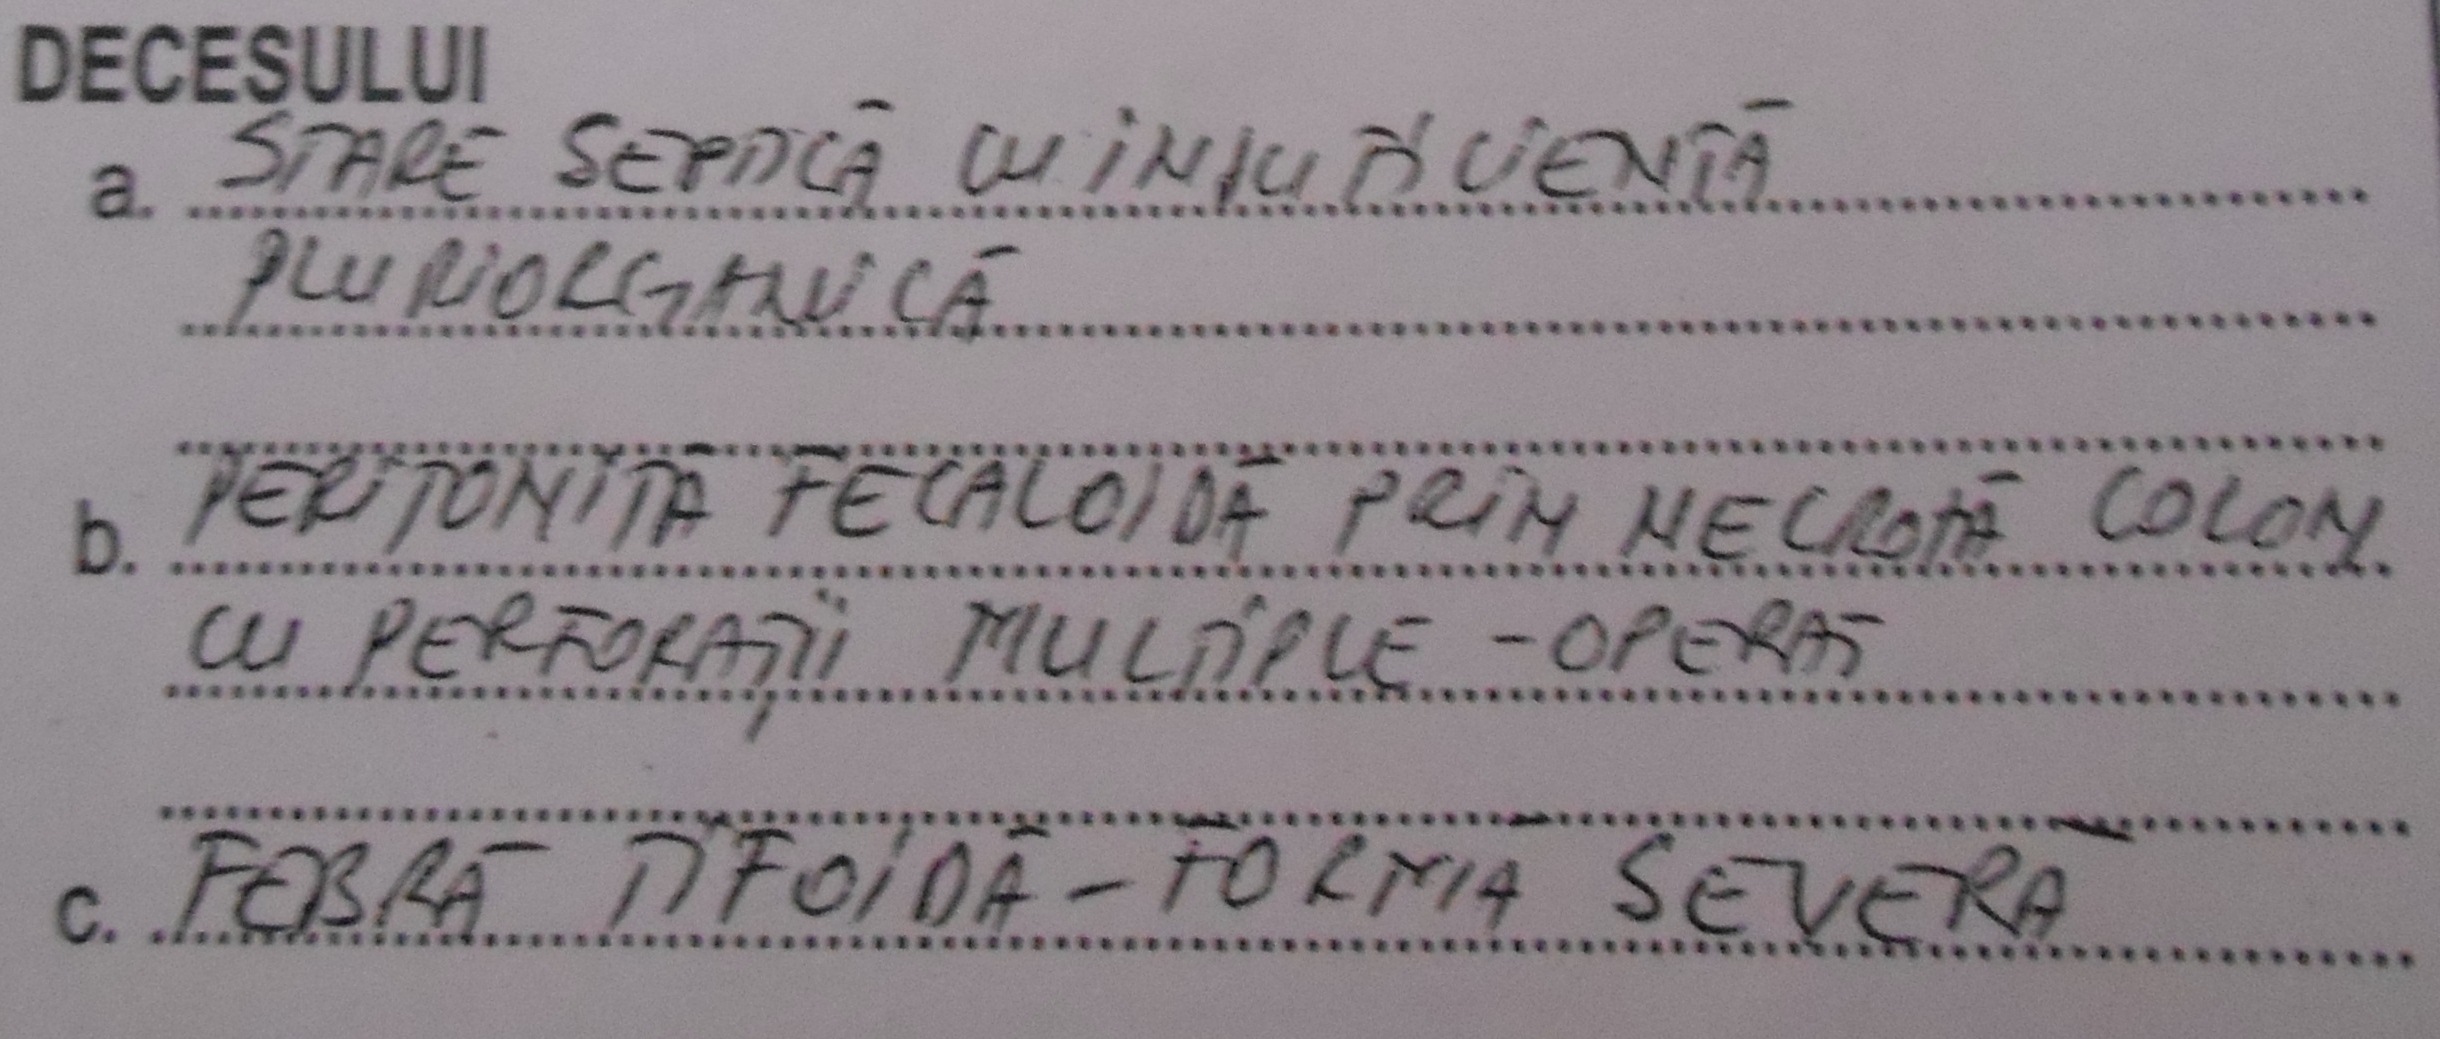 DECESULUI
a. STARE SEPTICĂ CU INSUFICIENTĂ
PLURIORGANICĂ
b. PERITONITĂ FECALOIDĂ PRIN NECROZĂ COLON
CU PERFORAȚII MULTIPLE - OPERAT
c. FEBRĂ TIFOIDĂ - FORMĂ SEVERĂ